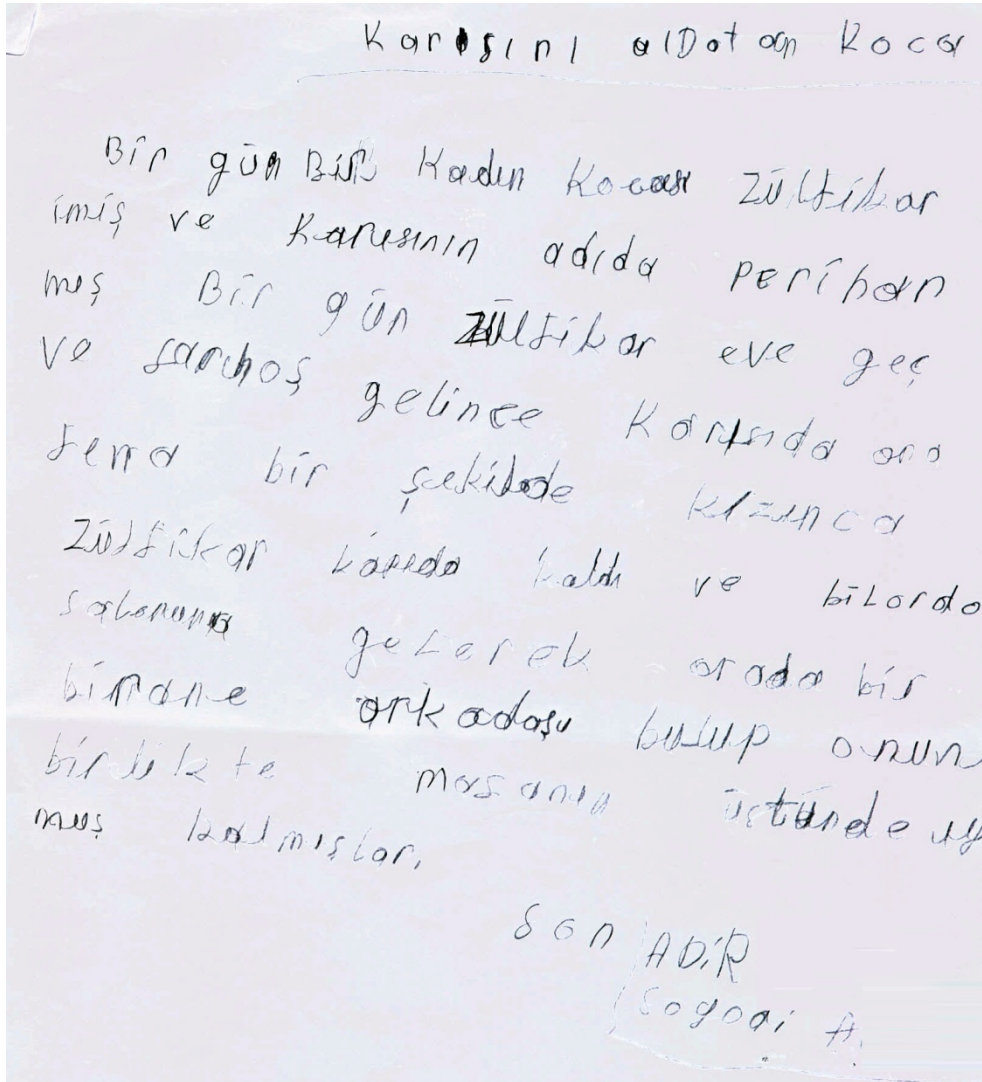 Karısını alDatan Koca
Bir gün Bir Kadın Kocası Zülfikar
imiş ve Karısının adıda Perihan
mış Bir gün Zülfikar eve geç
ve sarhoş gelince Karısıda ona
fena bir şekilde kızınca
Zülfikar kapıda kaldı ve bilardo
salonuna gelerek orada bir
birtane arkadaşı bulup onun
birlikte masanın üstünde uy
muş kalmışlar.
Son
ADİR